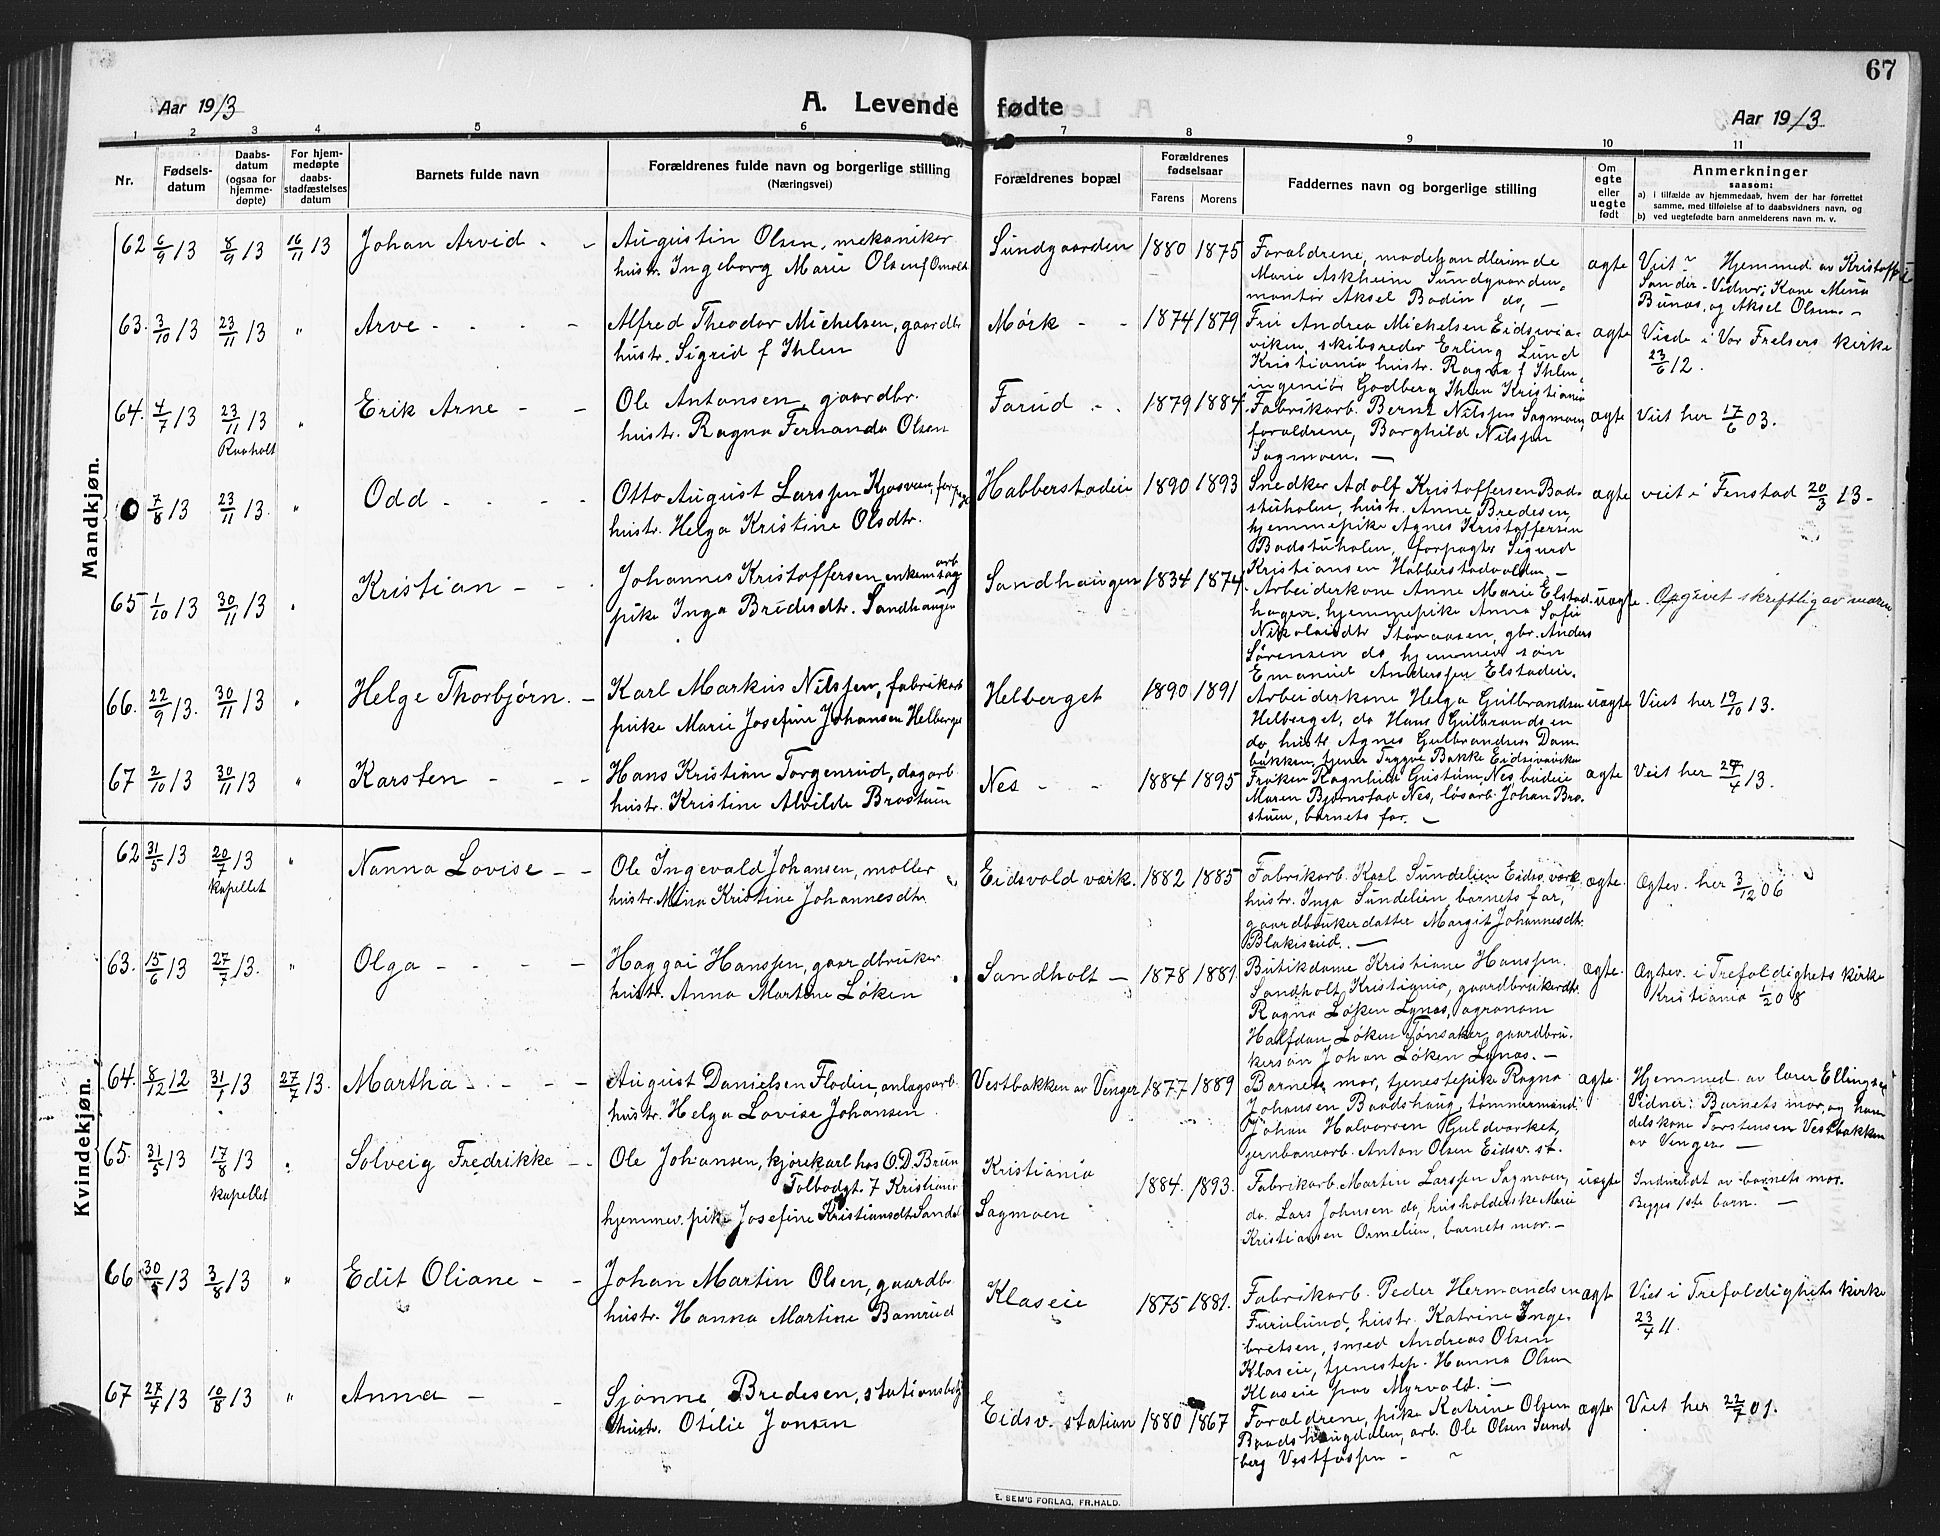 67
Aar 1913 A. Levende fødte Aar 1913
1 2 3 4 5 6 7 8 9 10 11
Nr.
Fødselsdatum
Daabsdatum (ogsaa for hjemmedøpte)
For hjemmedøpte daabsstadfæstelses datum
Barnets fulde navn
Forældrenes fulde navn og borgerlige stilling (Næringsvei)
Forældrenes bopæl
Forældrenes fødselsaar
Farens Morens
Faddernes navn og borgerlige stilling
Om egte eller uegte født
Anmerkninger
saasom:
a) i tilfælde av hjemmedaab, hvem der har forrettet samme, med tilføielse af to daabsvidners navn, og
b) ved uegtefødte barn anmelderens navn m. v.
Mandkjøn.
62 6/9 13 8/9 13 16/11 13 Johan Arvid - -
Augustin Olsen, mekaniker
hustr. Ingeborg Marie Olsen f Omold
Sundgaarden 1880 1875
Foraldrene, modehandlerinde
Marie Askheim Sundgaarden,
montør Aksel Bodin do, —
ægte
Viet ~ Hjemmed av Kristoffer
Sander. Vidner: Kone Mina
Bunæs, og Aksel Olsen. -
63. 3/10 13 23/11 13 " Arve - - - -
Alfred Theodor Michelsen, gaardbr
hustr. Sigrid f Ihlen
Mørk - - 1874 1879
Fru Andrea Michelsen Eidsvia-
viken, skibsreder Erling Lund
Kristiania hustr. Ragna f Ihlen,
ingeniør Godberg Ihlen Kristiania
ægte
Viede i Vor Frelsers kirke
23/6 12.
64. 4/7 13 23/11 13 Raaholt " Erik Arne - -
Ole Antonsen, gaardbr.
hustr. Ragna Fernanda Olsen
Forud - . 1879 1884
Fabrikarb. Bernt Nilssen Sagmoen,
foraldrene, Borghild Nilssen
Sagmoen. —
ægte Viet her 17/6 03.
7/8 13 23/11 13. " Odd - - - -
Otto August Larssen Kjosveen, forpagt
hustr. Helga Kristine Olsdtr.
Habberstadeie 1890 1893
Snedker Adolf Kristoffersen Bad-
stuholen, hustr. Anne Bredesen,
hjemmepike Agnes Kristoffersen
Badstuholen, forpagter Sigurd
Kristiansen Habberstadvolden —
ægte viet i Fenstad 20/3 13-
65 1/10 13 30/11 13 " Kristian - - .
Johannes Kristoffersen enkem dag arb
pike Inga Bredesdtr. Sandhaugen
Sandhaugen 1834 1874
Arbeiderkone Anne Marie Elstad-
hagen, hjemmepike Anna Sofie
Nikolaidtr Storaasen, gbr. Anders
Sørensen do hjemmev. søn
Emanuel Anderssen Elstadeie.
uægte. Opgivet skriftlig av moren
66. 22/9 13. 30/11 13 " Helge Thorbjørn. -
Karl Markus Nilssen, fabrikarb
pike Marie Josefine Johansen Helberget
Helberget 1890 1891
Arbeiderkone Helga Gulbrandsen
Helberget, do Hans Gulbrandsen
do, hustr Agnes Gulbrandsen Dam-
bakken, tjener Trygve Bakke Eidsvaviken
uægte Viet her 19/10 13.
67 2/10 13 30/11 13 " Karsten - - -
Hans Kristian Torgenrud, dagarb
hustr. Kristine Alvilde Brostuen
Nes - - 1884 1895
Frøken Ragnhild Gistum Nes, budeie
Maren Bjørnstad Nes, løsarb. Johan Bro-
stuen, barnets far. -
ægte Viet her 27/4 13.
Kvindekjøn.
62 31/5 13 20/7 13 kapellet " Nanna Lovise - -
Ole Ingevald Johansen, møller
hustr. Mina Kristine Johannesdtr
Eidsvold værk. 1882 1885
Fabrikarb. Karl Sundelien Eidsv. værk
hustr. Inga Sundelien, barnets far,
gaardbrukerdatter Margit Johannesdtr
Blakisrud. —
ægte. Ægtev. her 3/12 06
63. 15/6 13 27/7 13. " Olga - - - -
Haggai Hanssen, gaardbruker
hustr. Anna Martine Løken
Sandholt - 1878 1881
Butikdame Kristiane Hanssen
Sandholt, Kristiania, gaardbrukerdtr.
Ragna Løken Lynæs, agronom
Halfdan Løken Tønsaker, gaardbru-
kersøn Johan Løken Lynæs. -
ægte.
Ægtev. i Trefoldighets kirke
Kristiania 1/20 08
64. 8/12 12 31/1 13 27/7 13. Martha - - - -
August Danielsen Flodin, anlagsarb.
hustr. Helga Lovise Johansen
Vestbakken av Venger 1877 1889
Barnets mor, tjenestepike Ragna
Johansen Baadshaug, tømmermand
Johan Halvorsen Guldverket,
jernbanearb. Anton Olsen Eidsv. st.
ægte.
Hjemmed av lærer Ellingsen
Vidner: Barnets mor, og han-
delskone Torstensen Vestbakken
av Venger. —
65. 31/5 13 17/8 13 kapellet " Solveig Fredrikke - -
Ole Johansen, kjørekarl hos O. D. Brun
Tolbodgt. 7 Kristiania
hjemmev. pike Josefine Kristiansdtr Sandal
Kristiania
Sagmoen 1884. 1893.
Fabrikarb. Martin Larssen Sagmoen,
do. Lars Johnsen do, husholderske Marie
Kristiansen Ormelien, barnets mor. -
uægte
Indmeldt av barnets mor.
Begges 1ste barn. —
66 30/5 13 3/8 13 " Edit Oliane - -
Johan Martin Olsen, gaardbr
hustr. Hanna Martine Bamrud
Klaseie 1875 1881.
Fabrikarb. Peder Hermandsen
Furulund, hustr. Katrine Inge-
bretsen, smed Andreas Olsen
Klaseie, tjenestep. Hanna Olsen
Klaseie paa Myrvold. -
ægt
Vied i Trefoldighets kirke
23/4 11.
67 27/4 13 10/8 13 " Anna - -
Sjønne Bredesen, stationsbetj
hustr. Otilie Jonsen
Eidsv. station 1880 1867
Foraldrene, pike Katrine Olsen
Baadshaugdalen, arb. Ole Olsen Sand-
berg Vestfossen - ~
ægte Viet her 22/7 01.
E. SEM'S FORLAG, FR.HALD.